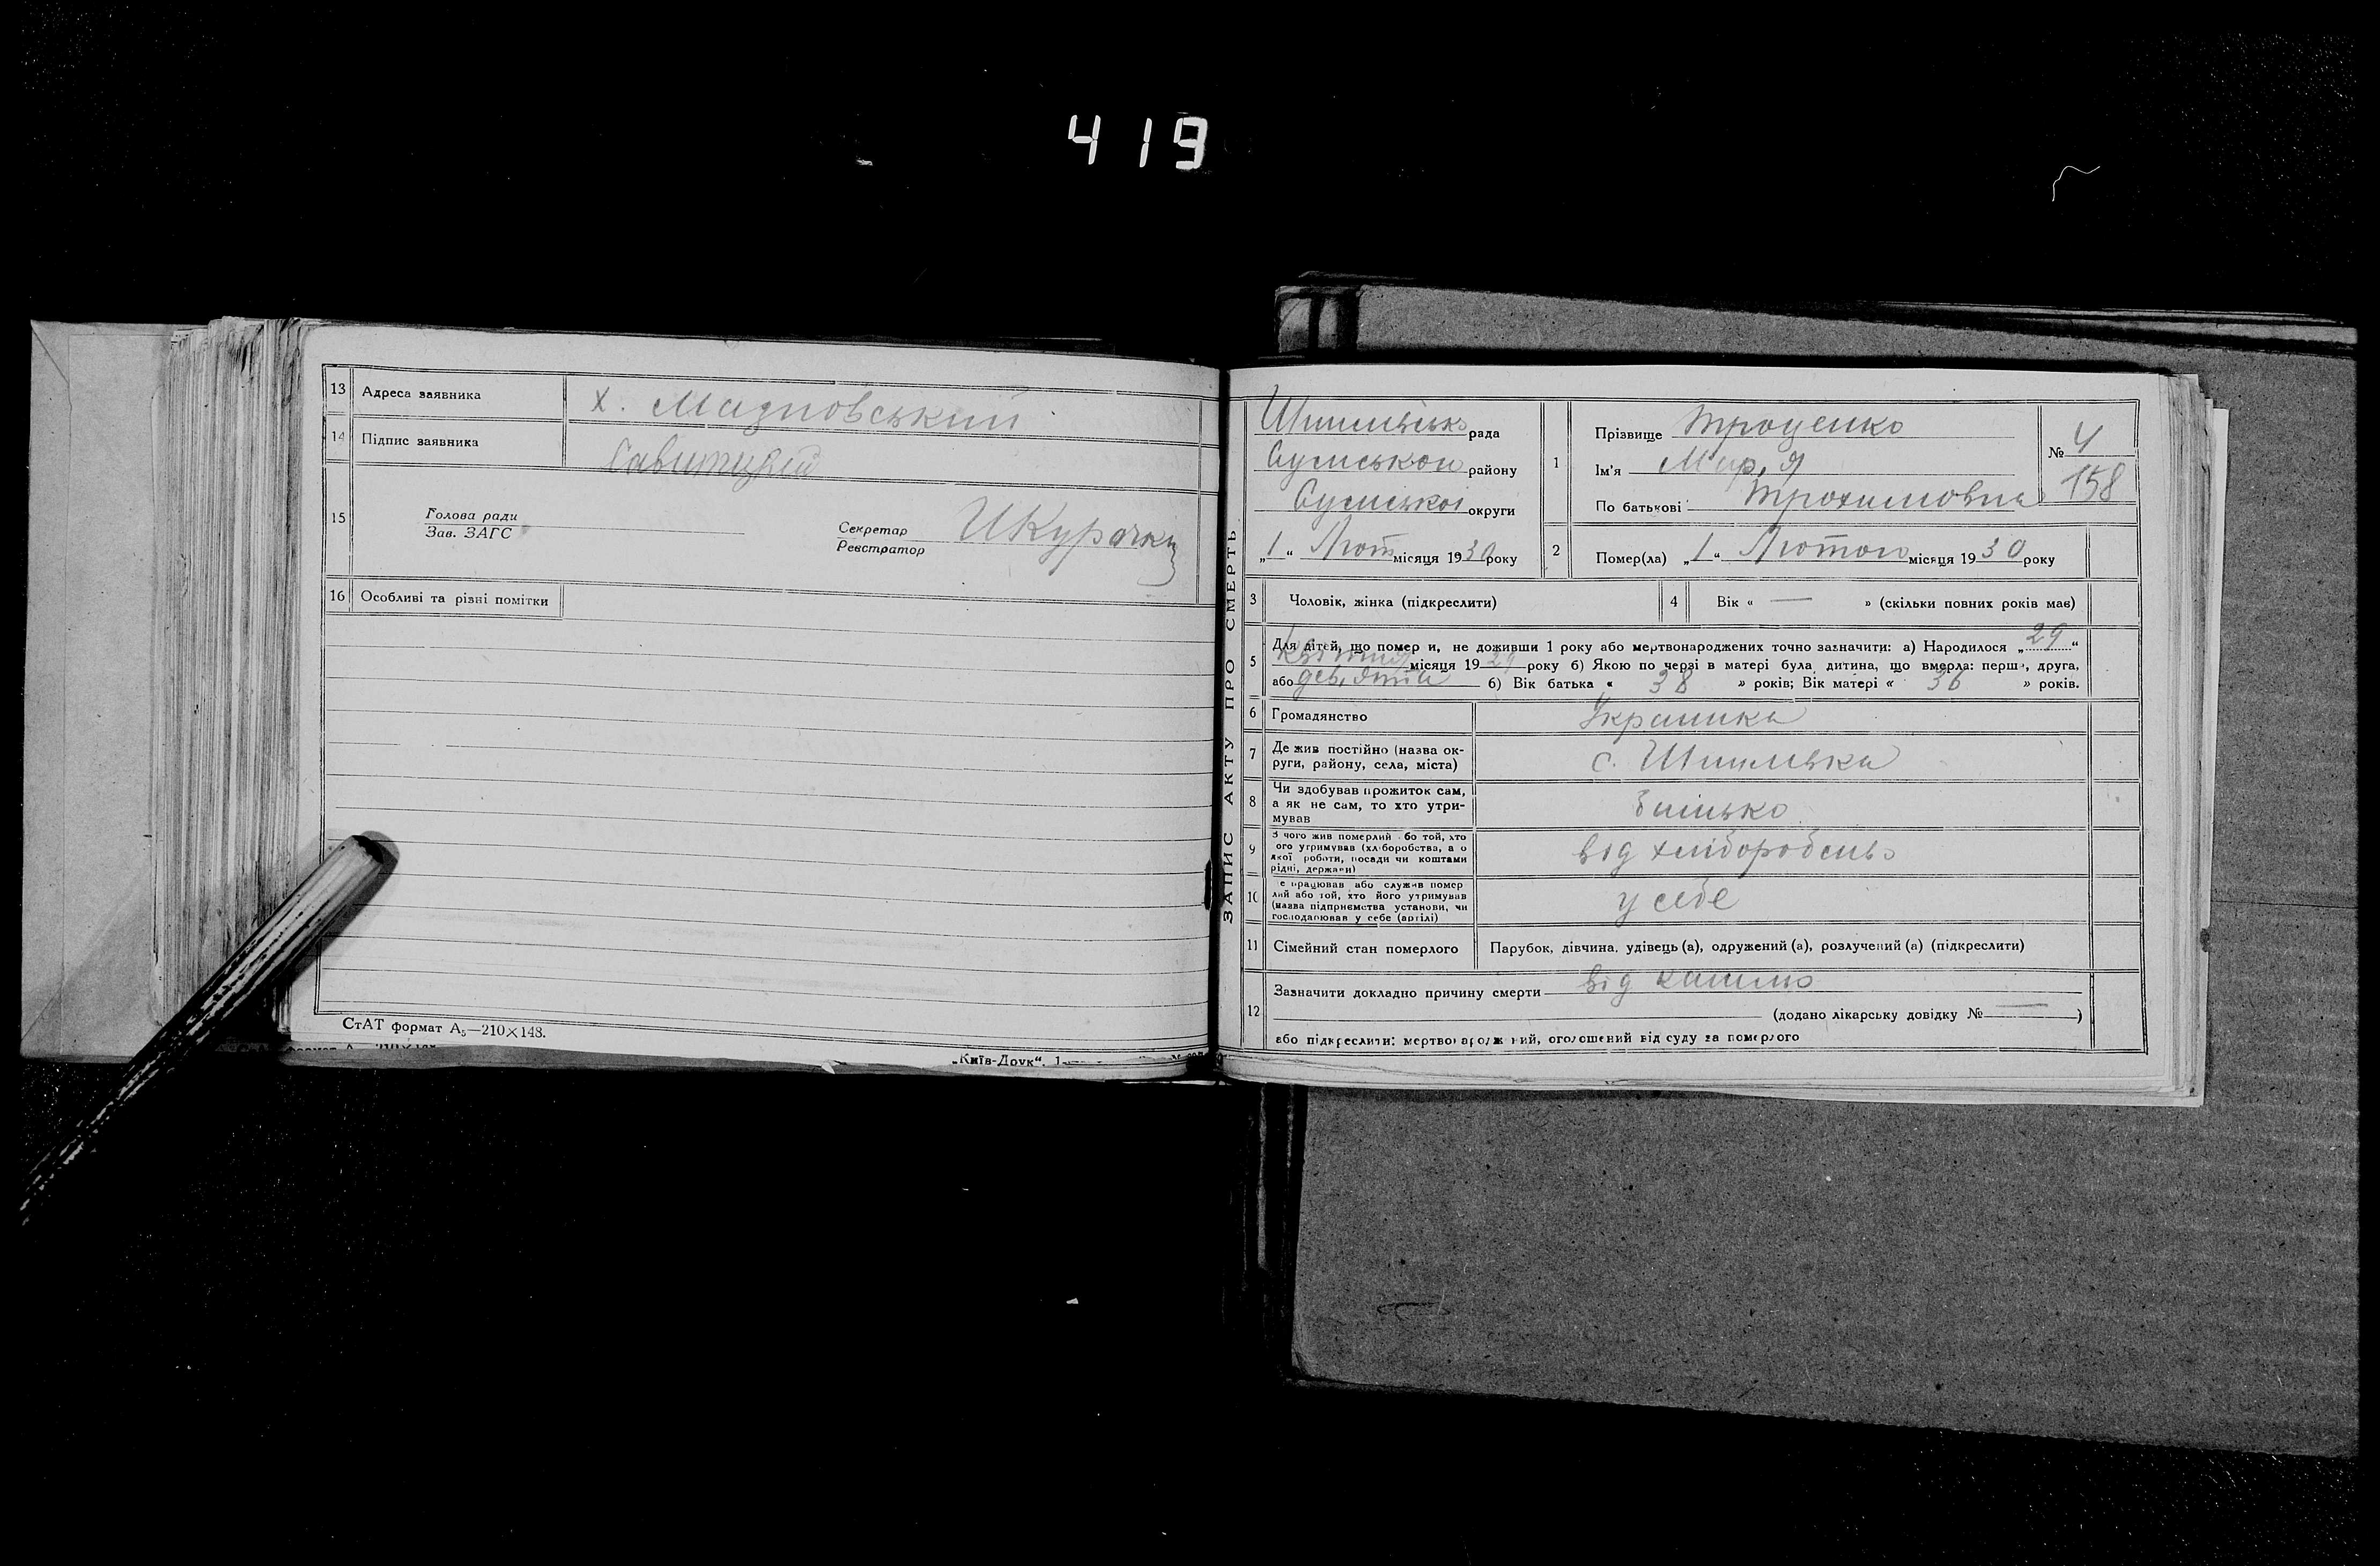 419
13 Адреса заявника х. Мазновський
14 Підпис заявника
15 Голова ради
Зав. ЗАГС
Секретар
Реєстратор
16 Особливі та різні помітки
СтАТ формат А₅—210×148.
„Київ-Друк“.
ЗАПИС АКТУ ПРО СМЕРТЬ
рада
Сумськои району
Сумськоі округи
„1“ Лют місяця 1930 року
1 Прізвище Троценко
Ім'я Мар,я
По батькові Трохимовна
№ 4
158
2 Помер(ла) „1“ Лютого місяця 1930 року
3 Чоловік, жінка (підкреслити)
4 Вік « — » (скільки повних років має)
5 Для дітей, що помер и, не доживши 1 року або мертвонароджених точно зазначити: а) Народилося „29“
Квітня місяця 1929 року б) Якою по черзі в матері була дитина, що вмерла: перша, друга,
або дев,ята б) Вік батька « 38 » років; Вік матері « 36 » років.
6 Громадянство Українка
7 Де жив постійно (назва ок-
руги, району, села, міста) с. Шпилівка
8 Чи здобував прожиток сам,
а як не сам, то хто утри-
мував батько
9 З чого жив померлий або той, хто
його утримував (хліборобства, а о
якої роботи, посади чи коштами
рідні, держави) від хліборобств
10 Де працював або служив помер
лий або той, хто його утримував
(назва підприємства установи, чи
господарював у себе (артілі) у себе
11 Сімейний стан померлого Парубок, дівчина, удівець (а), одружений (а), розлучений (а) (підкреслити)
12 Зазначити докладно причину смерти від кашлю
(додано лікарську довідку № — )
або підкреслити: мертвонароджений, оголошений від суду за померлого